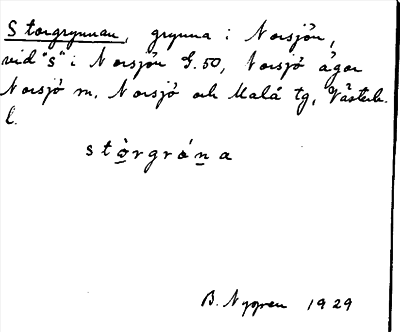 Storgrynnan, grynna i Norsjön,
vid "s" i Norsjön G.50, Norsjö ägor
Norsjö sn, Norsjö och Malå tg, Västerb.
l.
stòrgróna
B. Nygren 1929